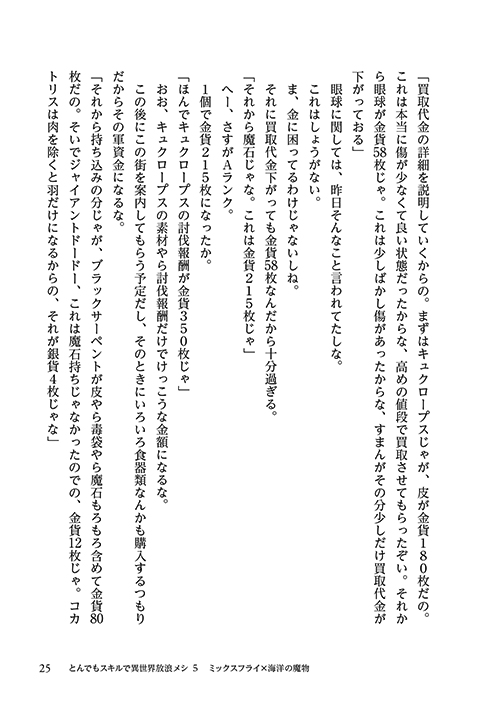 「買取代金の詳細を説明していくからの。まずはキュクロープスじゃが、皮が金貨１８０枚だの。
これは本当に傷が少なくて良い状態だったからな、高めの値段で買取させてもらったぞい。それか
ら眼球が金貨58枚じゃ。これは少しばかし傷があったからな、すまんがその分少しだけ買取代金が
下がっておる」
眼球に関しては、昨日そんなこと言われてたしな。
これはしょうがない。
ま、金に困ってるわけじゃないしね。
それに買取代金下がっても金貨58枚なんだから十分過ぎる。
「それから魔石じゃな。これは金貨２１５枚じゃ」
へー、さすがＡランク。
１個で金貨２１５枚になったか。
「ほんでキュクロープスの討伐報酬が金貨３５０枚じゃ」
おお、キュクロープスの素材やら討伐報酬だけでけっこうな金額になるな。
この後にこの街を案内してもらう予定だし、そのときにいろいろ食器類なんかも購入するつもり
だからその軍資金になるな。
「それから持ち込みの分じゃが、ブラックサーペントが皮やら毒袋やら魔石もろもろ含めて金貨80
枚だの。そいでジャイアントドードー、これは魔石持ちじゃなかったのでの、金貨12枚じゃ。コカ
トリスは肉を除くと羽だけになるからの、それが銀貨４枚じゃな」
25 とんでもスキルで異世界放浪メシ 5 ミックスフライ×海洋の魔物